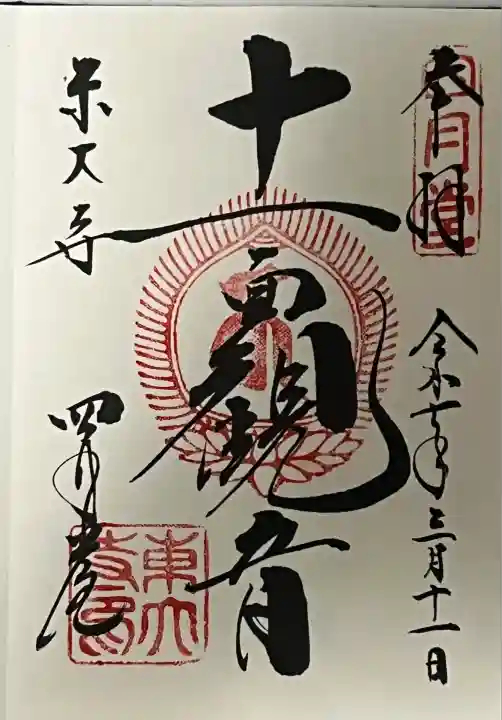 奉拝
四月堂
令和七年三月十一日
十一面観音
東大寺
四月堂
東大
寺印